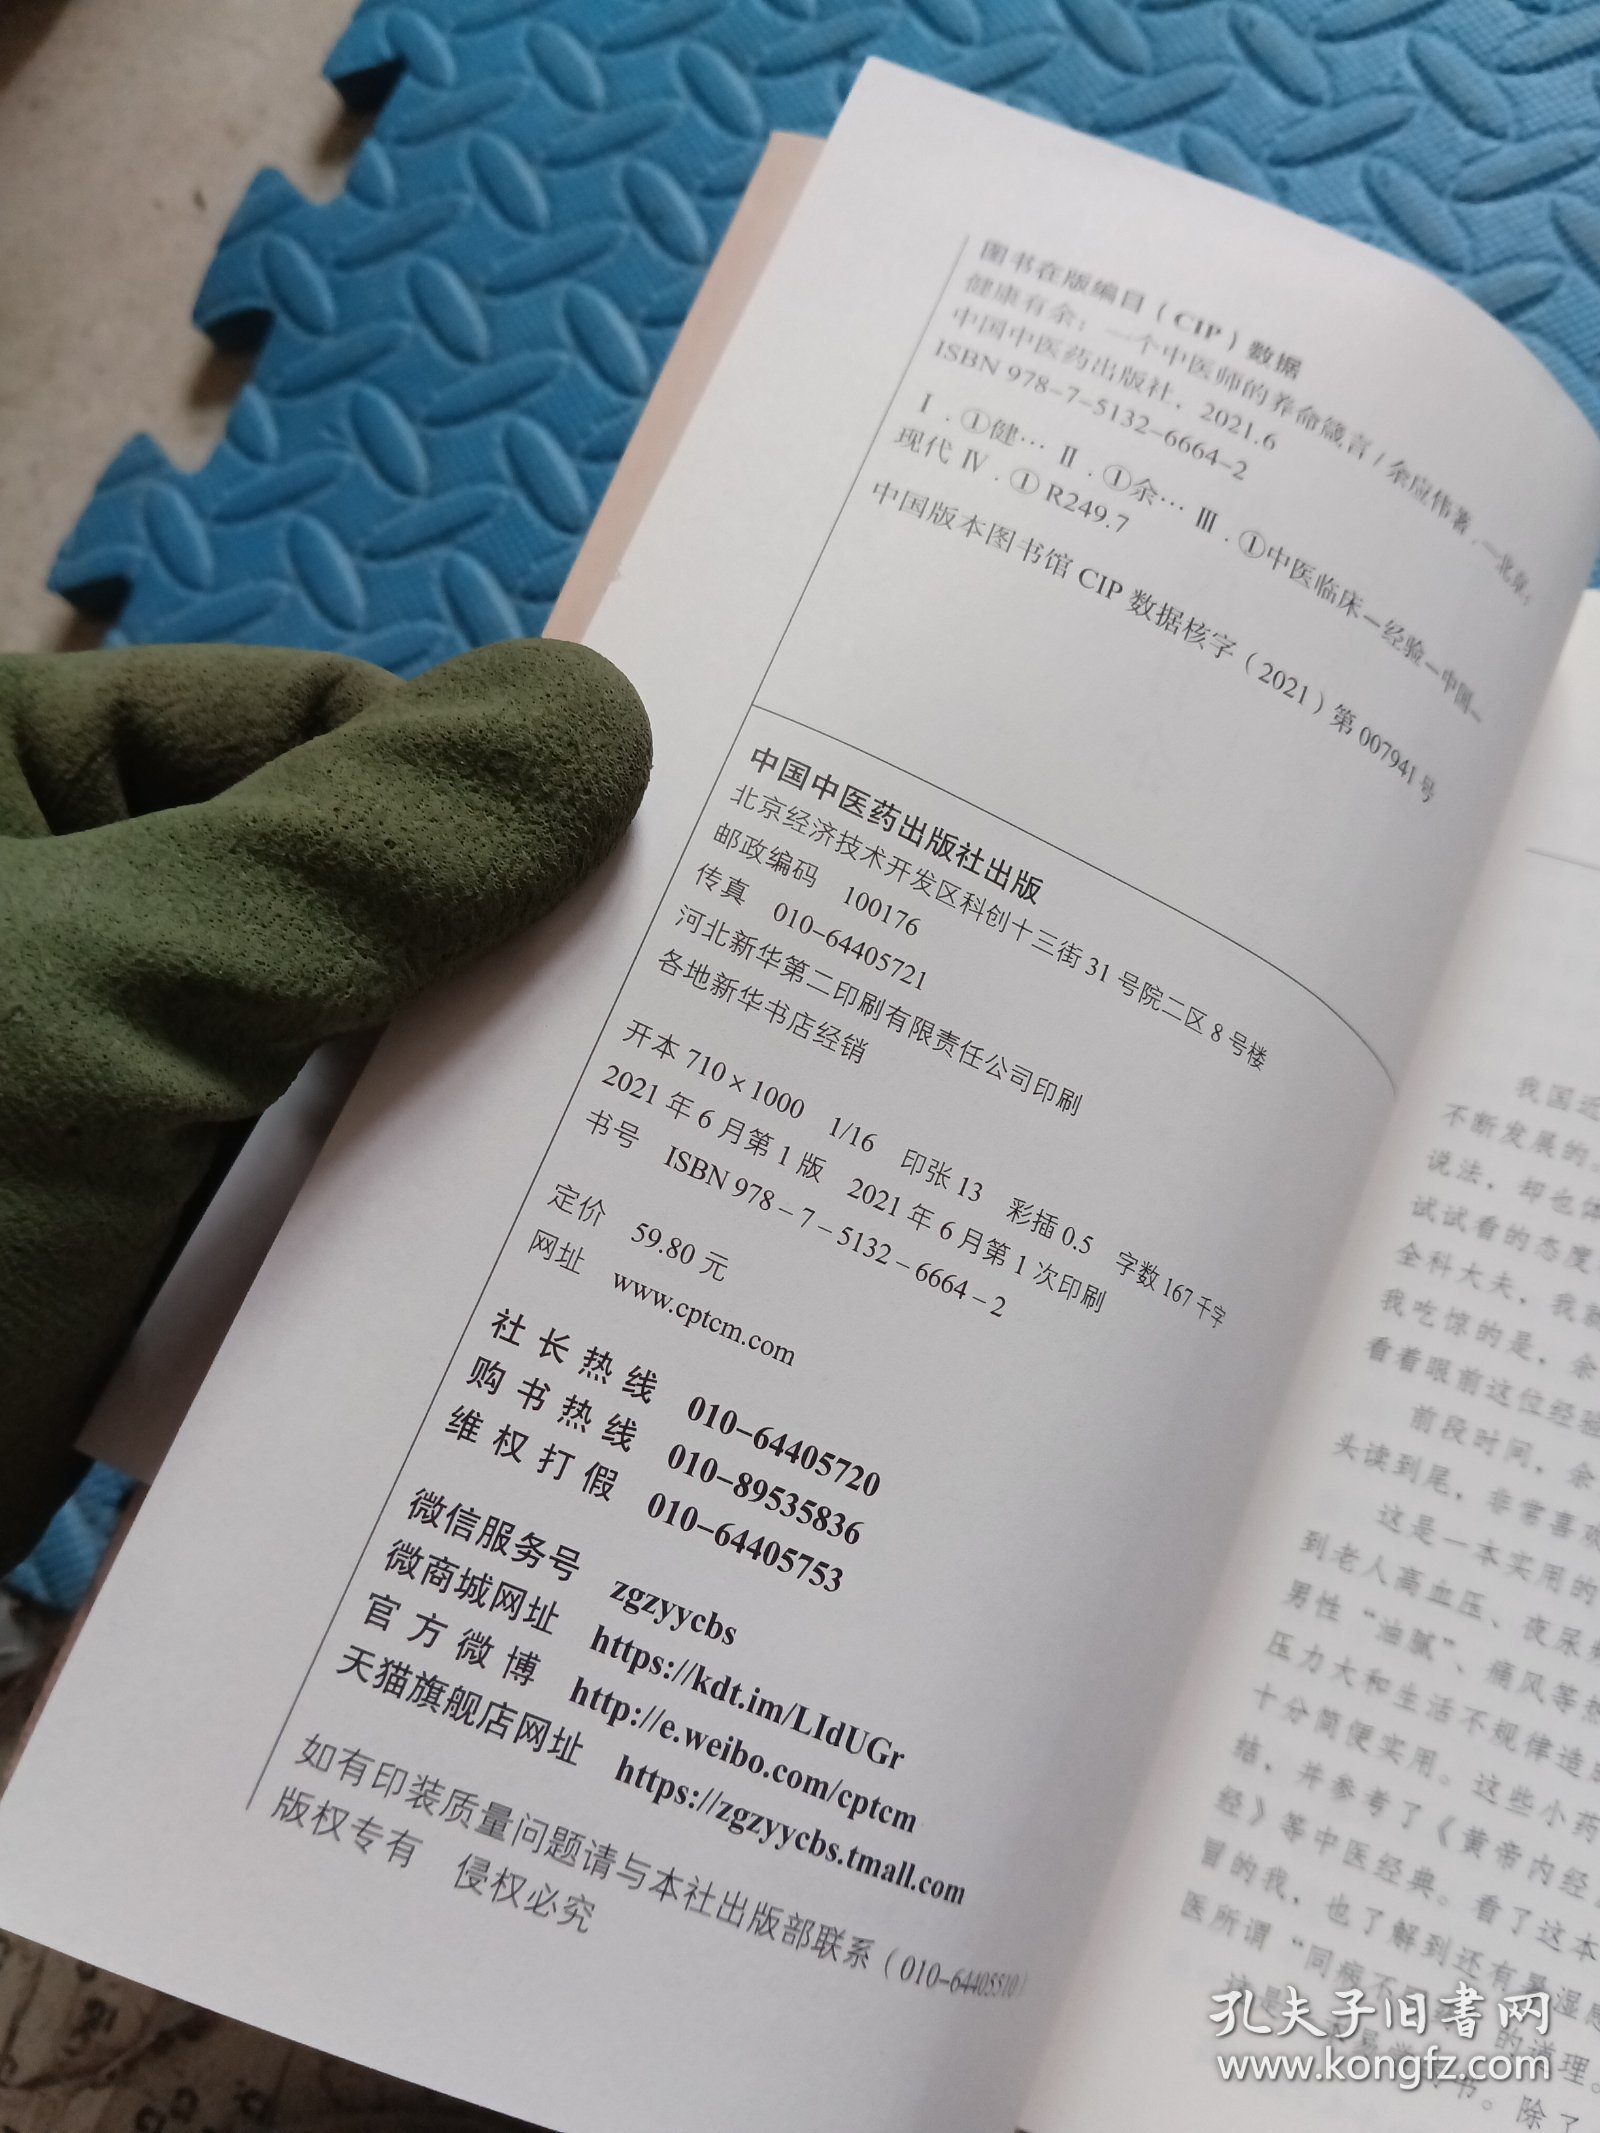 图书在版编目（CIP）数据
健康有余：一个中医师的养命箴言 / 余应伟著 . —北京：
中国中医药出版社，2021.6
ISBN 978-7-5132-6664-2
Ⅰ . ①健… Ⅱ . ①余… Ⅲ . ①中医临床—经验—中国—
现代 Ⅳ . ① R249.7
中国版本图书馆 CIP 数据核字（2021）第 007941 号
中国中医药出版社出版
北京经济技术开发区科创十三街 31 号院二区 8 号楼
邮政编码 100176
传真 010-64405721
河北新华第二印刷有限责任公司印刷
各地新华书店经销
开本 710×1000 1/16 印张 13 彩插 0.5 字数 167 千字
2021 年 6 月第 1 版 2021 年 6 月第 1 次印刷
书号 ISBN 978－7－5132－6664－2
定价 59.80 元
网址 www.cptcm.com
社长热线 010-64405720
购书热线 010-89535836
维权打假 010-64405753
微信服务号 zgzyycbs
微商城网址 https://kdt.im/LIdUGr
官方微博 http://e.weibo.com/cptcm
天猫旗舰店网址 https://zgzyycbs.tmall.com
如有印装质量问题请与本社出版部联系（010-64405510）
版权专有 侵权必究
我国近
不断发展的。
说法，却也体
试试看的态度
全科大夫，我就
我吃惊的是，余
看着眼前这位经验
前段时间，余
头读到尾，非常喜欢
这是一本实用的
到老人高血压、夜尿频
男性“油腻”、痛风等热
压力大和生活不规律造
十分简便实用。这些小药
结，并参考了《黄帝内经
经》等中医经典。看了这本
冒的我，也了解到还有暑湿感
医所谓“同病不
的道理。
书。除了
孔夫子旧书网
www.kongfz.com